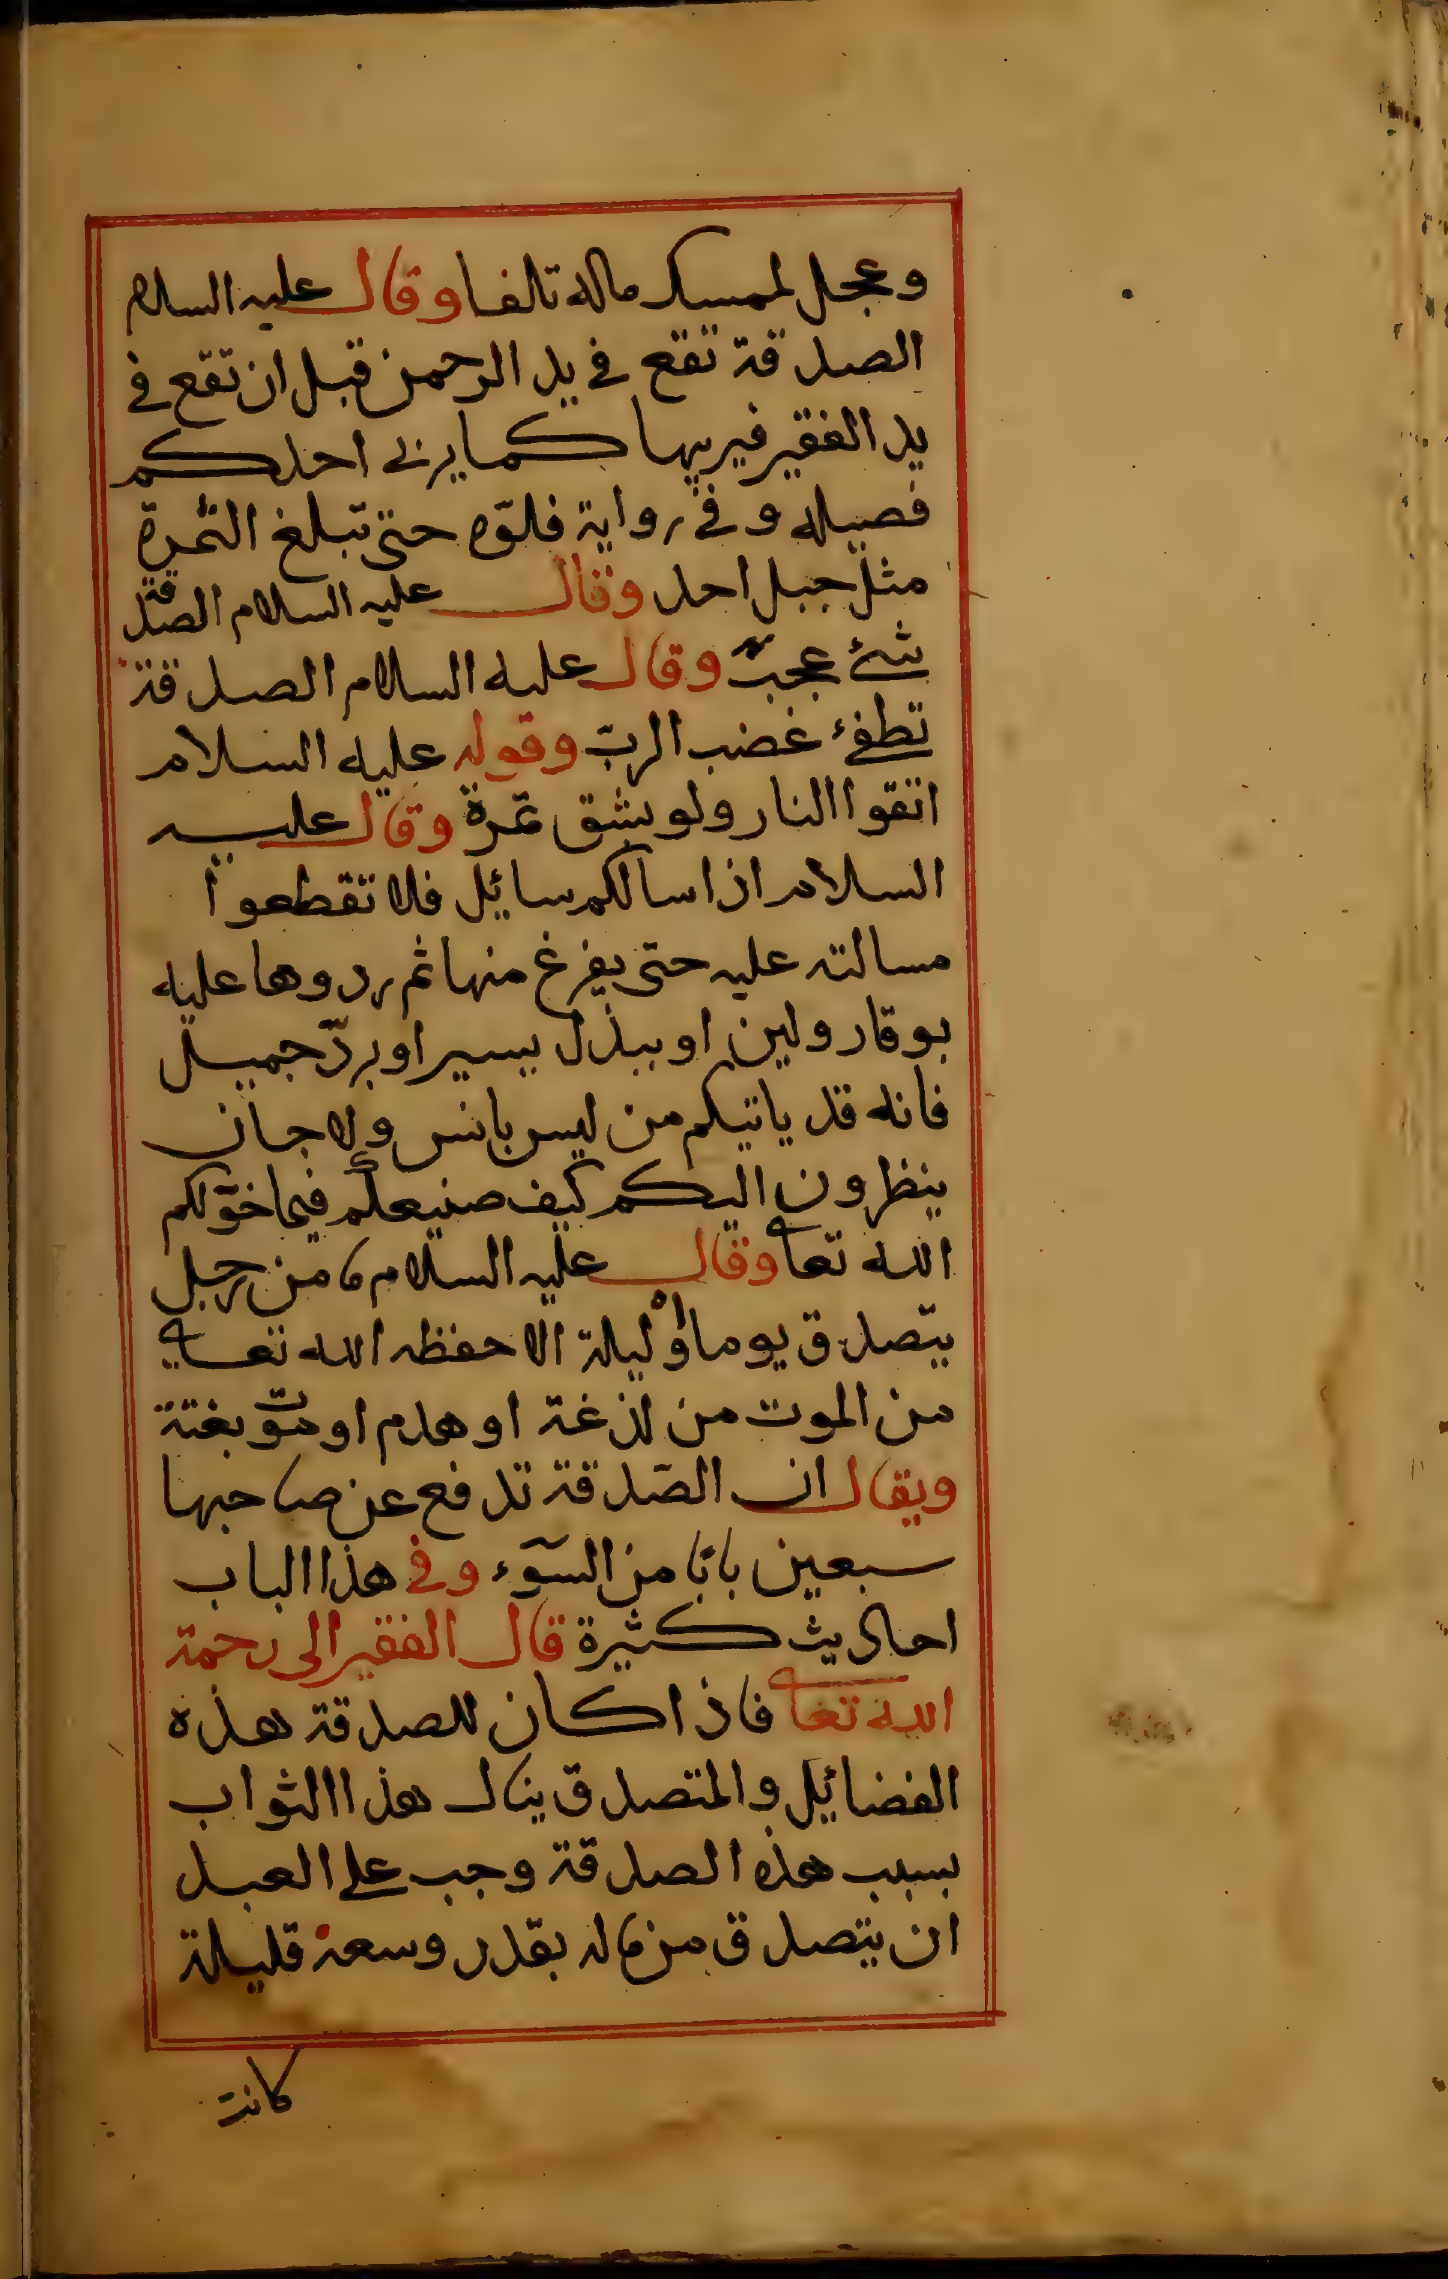 وعجل لممسك ماله تلفا وقال عليه السلام
الصدقة تقع في يد الرحمن قبل ان تقع في
يد الفقير فيربيها كما يربي احدكم
فصيله وفي رواية فلوّه حتى تبلغ التمرة
مثل جبل احد وقال عليه السلام الصدقة
شئ عجب وقال عليه السلام الصدقة
تطفئ غضب الربّ وقوله عليه السلام
اتقوا النار ولو بشق تمرة وقال عليه
السلام اذا سالكم سائل فلا تقطعوا
مسالته عليه حتى يفرغ منها ثم ردوها عليه
بوقار ولين او ببذل يسير او بردّ جميل
فانه قد ياتيكم من ليس بانس ولا جان
ينظرون اليكم كيف صنيعكم فيما خوّلكم
الله تعالى وقال عليه السلام ما من رجل
يتصدق يوما او ليلة الا حفظه الله تعالى
من الموت من لذغة او هدم او موت بغتة
ويقال ان الصدقة تدفع عن صاحبها
سبعين بابا من السوٓء وفي هذا الباب
احاديث كثيرة قال الفقير الى رحمة
الله تعالى فاذا كان للصدقة هذه
الفضائل والمتصدق ينال هذا الثواب
بسبب هذه الصدقة وجب على العبد
ان يتصدق من ماله بقدر وسعه قليلة
كانت